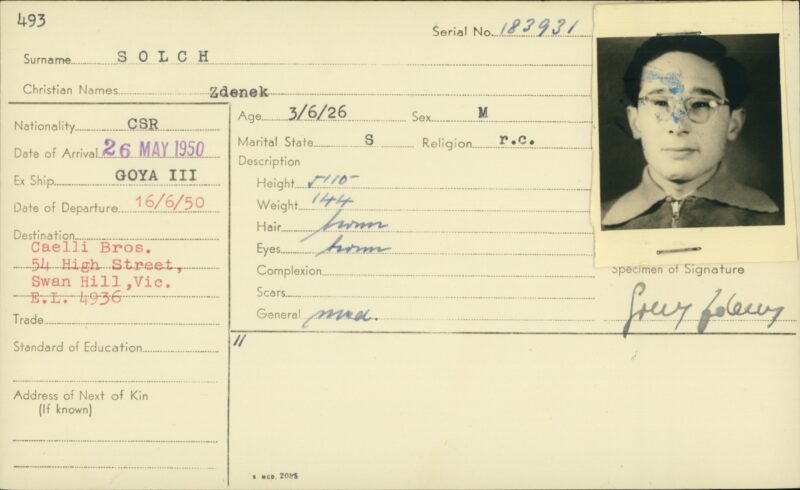 493
Serial No. 183931
Surname SOLCH
Christian Names Zdenek
Nationality CSR
Date of Arrival 26 MAY 1950
Ex Ship GOYA III
Date of Departure 16/6/50
Destination
Caelli Bros.
54 High Street,
Swan Hill, Vic.
E.L. 4936
Trade
Standard of Education
Address of Next of Kin
(If known)
Age 3/6/26 Sex M
Marital State S Religion r.c.
Description
Height 5'10"
Weight 144
Hair brown
Eyes brown
Complexion
Scars
General med.
Specimen of Signature
11